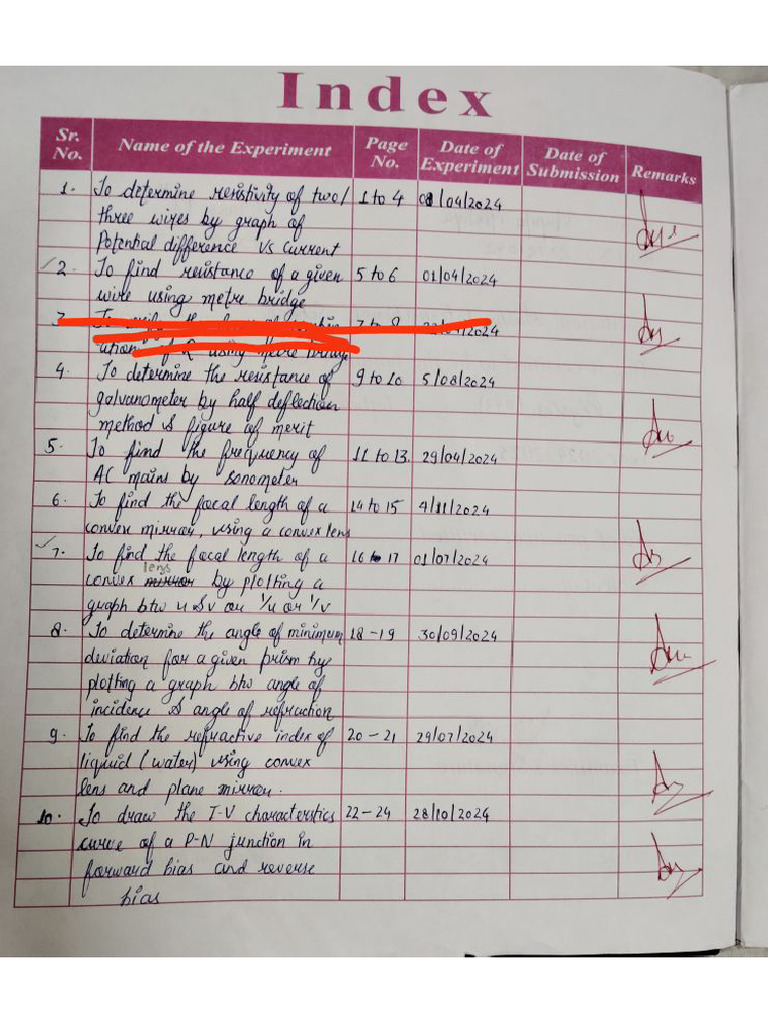 Index
Sr. No. Name of the Experiment Page No. Date of Experiment Date of Submission Remarks
1. To determine resistivity of two/ 1 to 4 08/04/2024
three wires by graph of
Potential difference vs Current
2. To find resistance of a given 5 to 6 01/04/2024
wire using metre bridge
3. 7 to 8
using metre bridge
4. To determine the resistance of 9 to 10 5/08/2024
galvanometer by half deflection
method & figure of merit
5. To find the frequency of 11 to 13. 29/04/2024
AC mains by sonometer
6. To find the focal length of a 14 to 15 4/11/2024
convex mirror, using a convex lens
7. To find the focal length of a 16 to 17 01/07/2024
lens
convex mirror by plotting a
graph btw u & v or 1/u or 1/v
8. To determine the angle of minimum 18-19 30/09/2024
deviation for a given prism by
plotting a graph btw angle of
incidence & angle of refraction
9. To find the refractive index of 20-21 29/07/2024
liquid (water) using convex
lens and plane mirror.
10. To draw the I-V characterstics 22-24 28/10/2024
curve of a P-N junction in
forward bias and reverse
bias